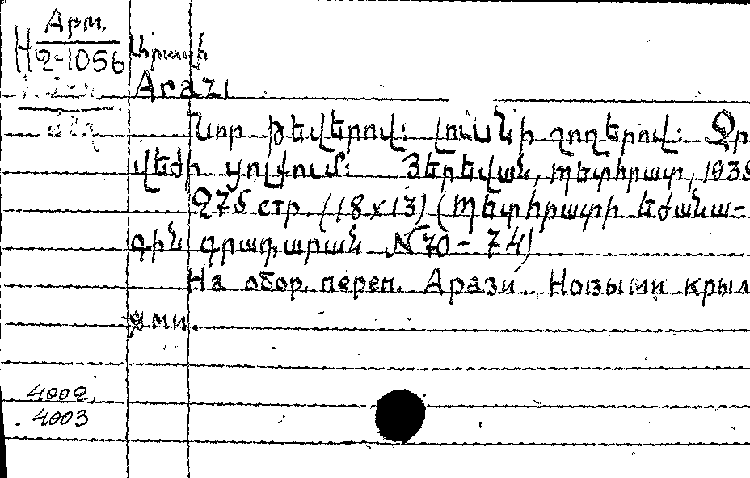 Арм.
H 2-1056
Արազի
Arazi
Նոր թեվերով: Լուսնի շողերով: Ջր
վեժի յոլում: Յերեվան, Պետհրատ, 1935
275 стр. (18x13) (Պետհրատի եժանա-
գին գրադարան N 70 - 74)
На обор. переп. Арази. Новыми крыл
ями.
4002.
4003